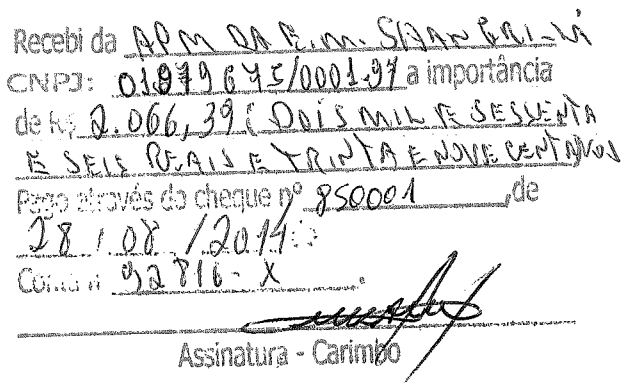 Recebi da APM DA E.M. SHANGRI-LÁ
CNPJ: 01.979675/0001.97 a importância
de R$ 2.066,39 ( DOIS MIL E SESSENTA
E SEIS REAIS E TRINTA E NOVE CENTAVOS
Pago através do cheque nº 850001 ,de
28 / 08 / 2014
Conta nº 92816-X .
Assinatura - Carimbo